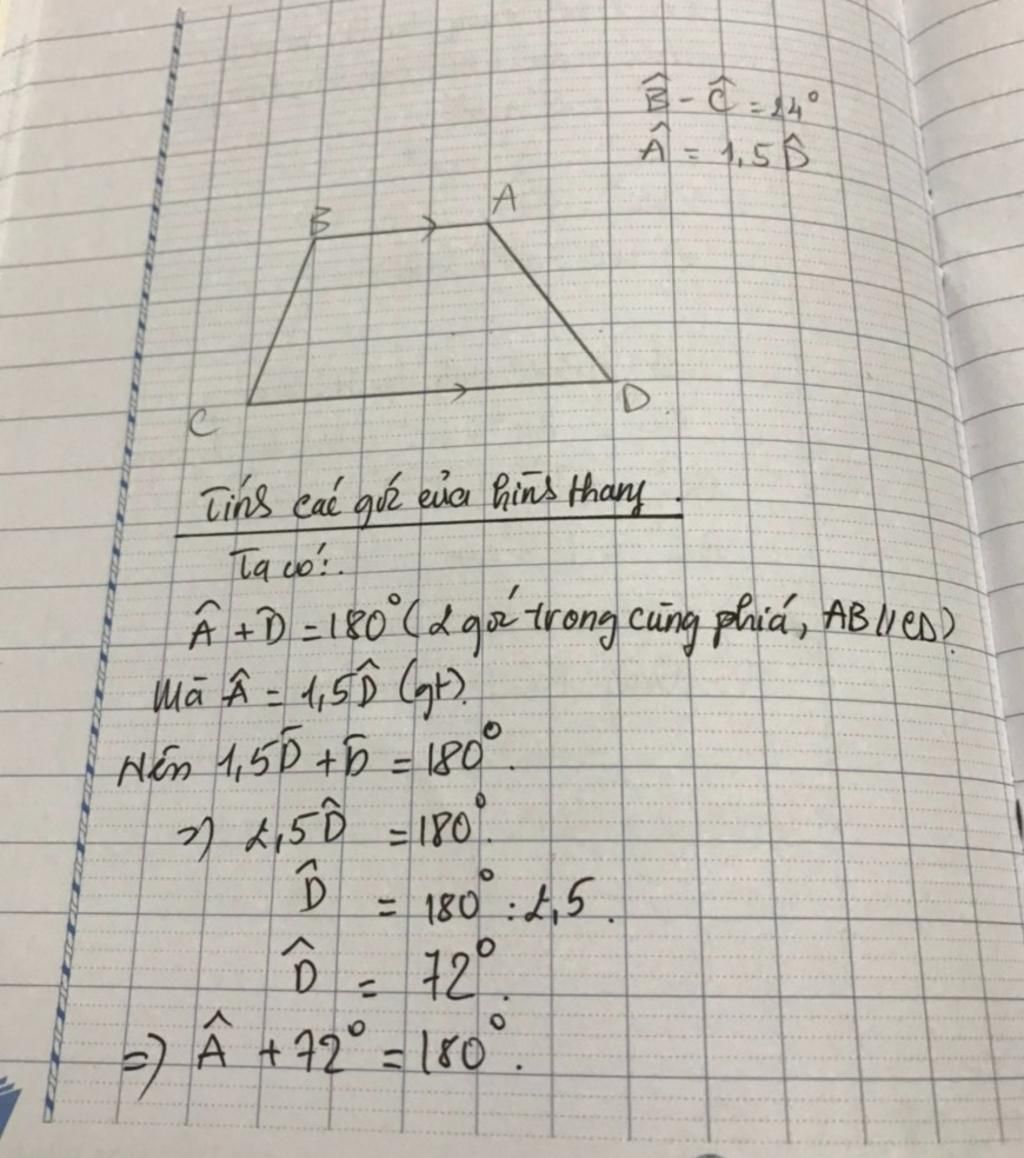 B̂ - Ĉ = 24°
Â = 1,5D̂
B
A
C
D
Tính các góc của hình thang.
Ta có:
Â + D̂ = 180° (2 góc trong cùng phía, AB // CD)
Mà Â = 1,5D̂ (gt).
Nên 1,5D̂ + D̂ = 180°.
=) 2,5D̂ = 180°.
D̂ = 180° : 2,5.
D̂ = 72°.
=) Â + 72° = 180°.